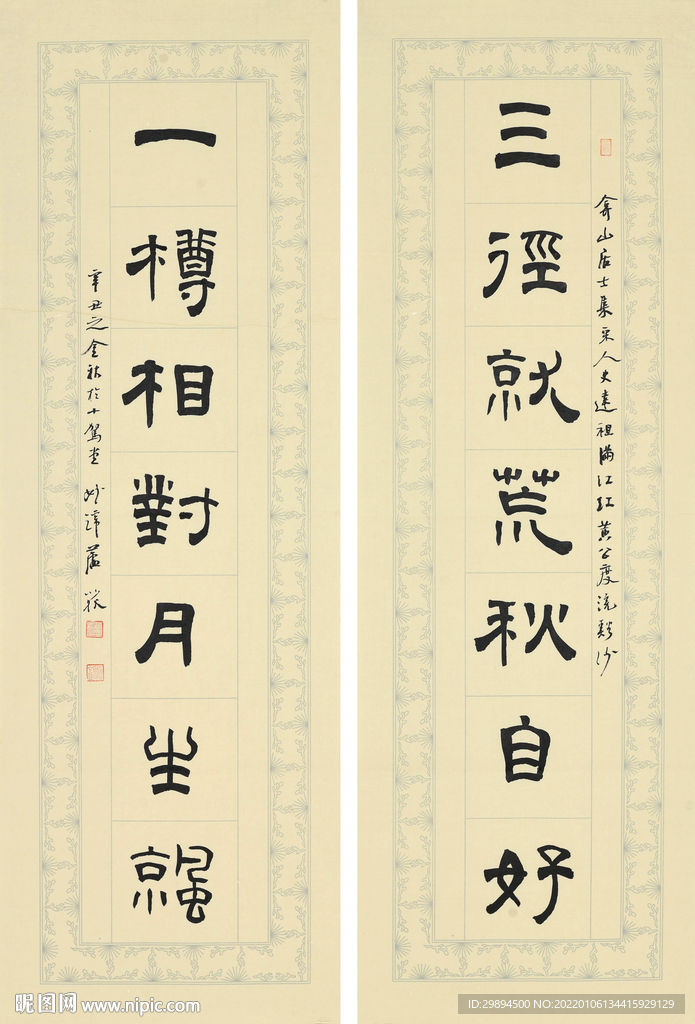 弇山居士集宋人史達祖滿江紅黃公度浣谿沙
三徑就荒秋自好
一樽相對月生
辛丑之金秋於十駕堂
昵图网 www.nipic.com
ID:29894500 NO:20220106134415929129